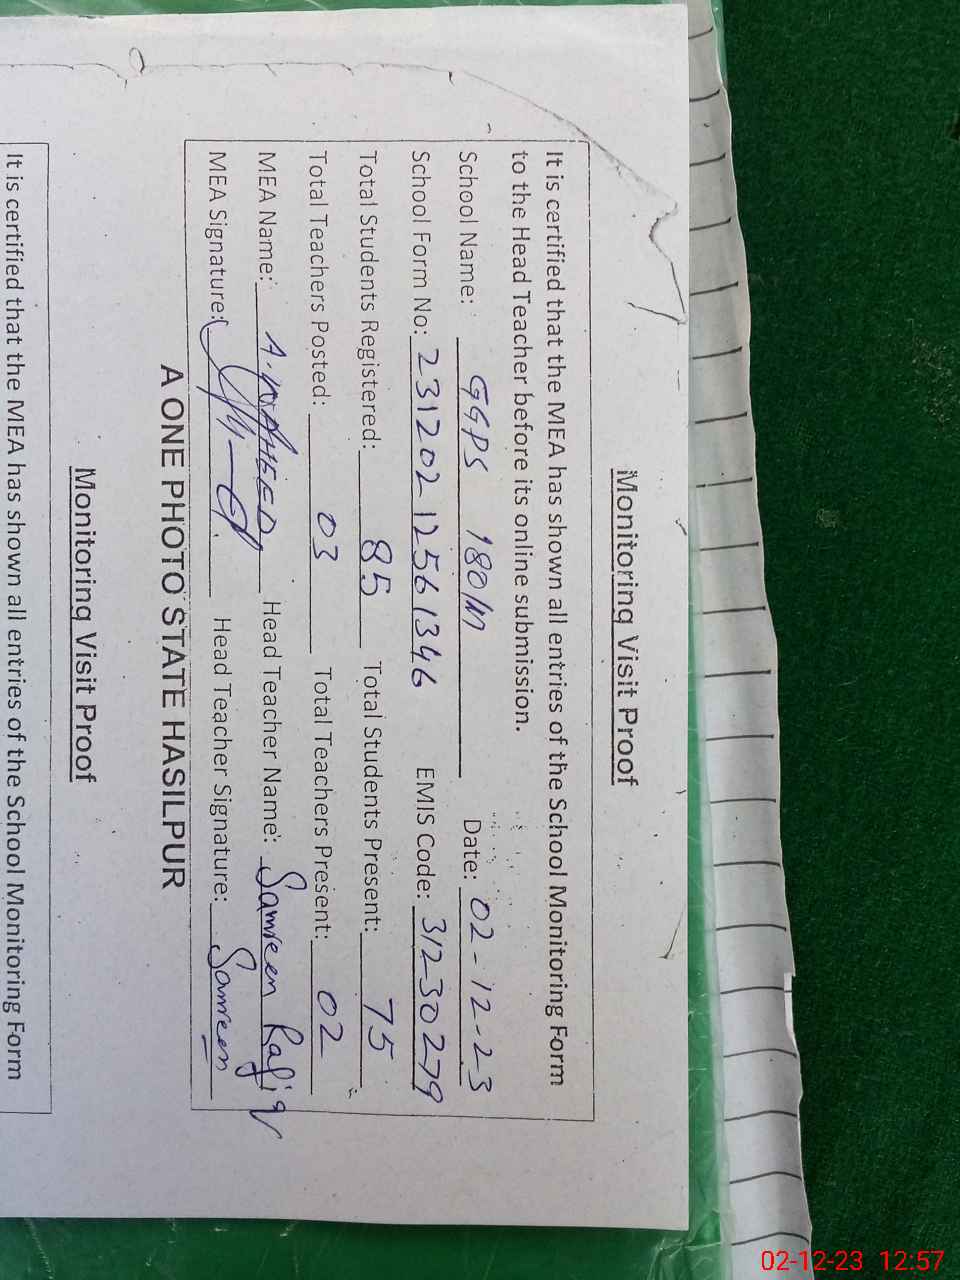 Monitoring Visit Proof
It is certified that the MEA has shown all entries of the School Monitoring Form
to the Head Teacher before its online submission.
School Name: GGPS 180/M Date: 02-12-23
School Form No: 231202 12561346 EMIS Code: 31230279
Total Students Registered: 85 Total Students Present: 75
Total Teachers Posted: 03 Total Teachers Present: 02
MEA Name: A. WAHEED Head Teacher Name: Samreen Rafiq
MEA Signature: Head Teacher Signature: Samreen
A ONE PHOTO STATE HASILPUR
Monitoring Visit Proof
It is certified that the MEA has shown all entries of the School Monitoring Form
02-12-23 12:57